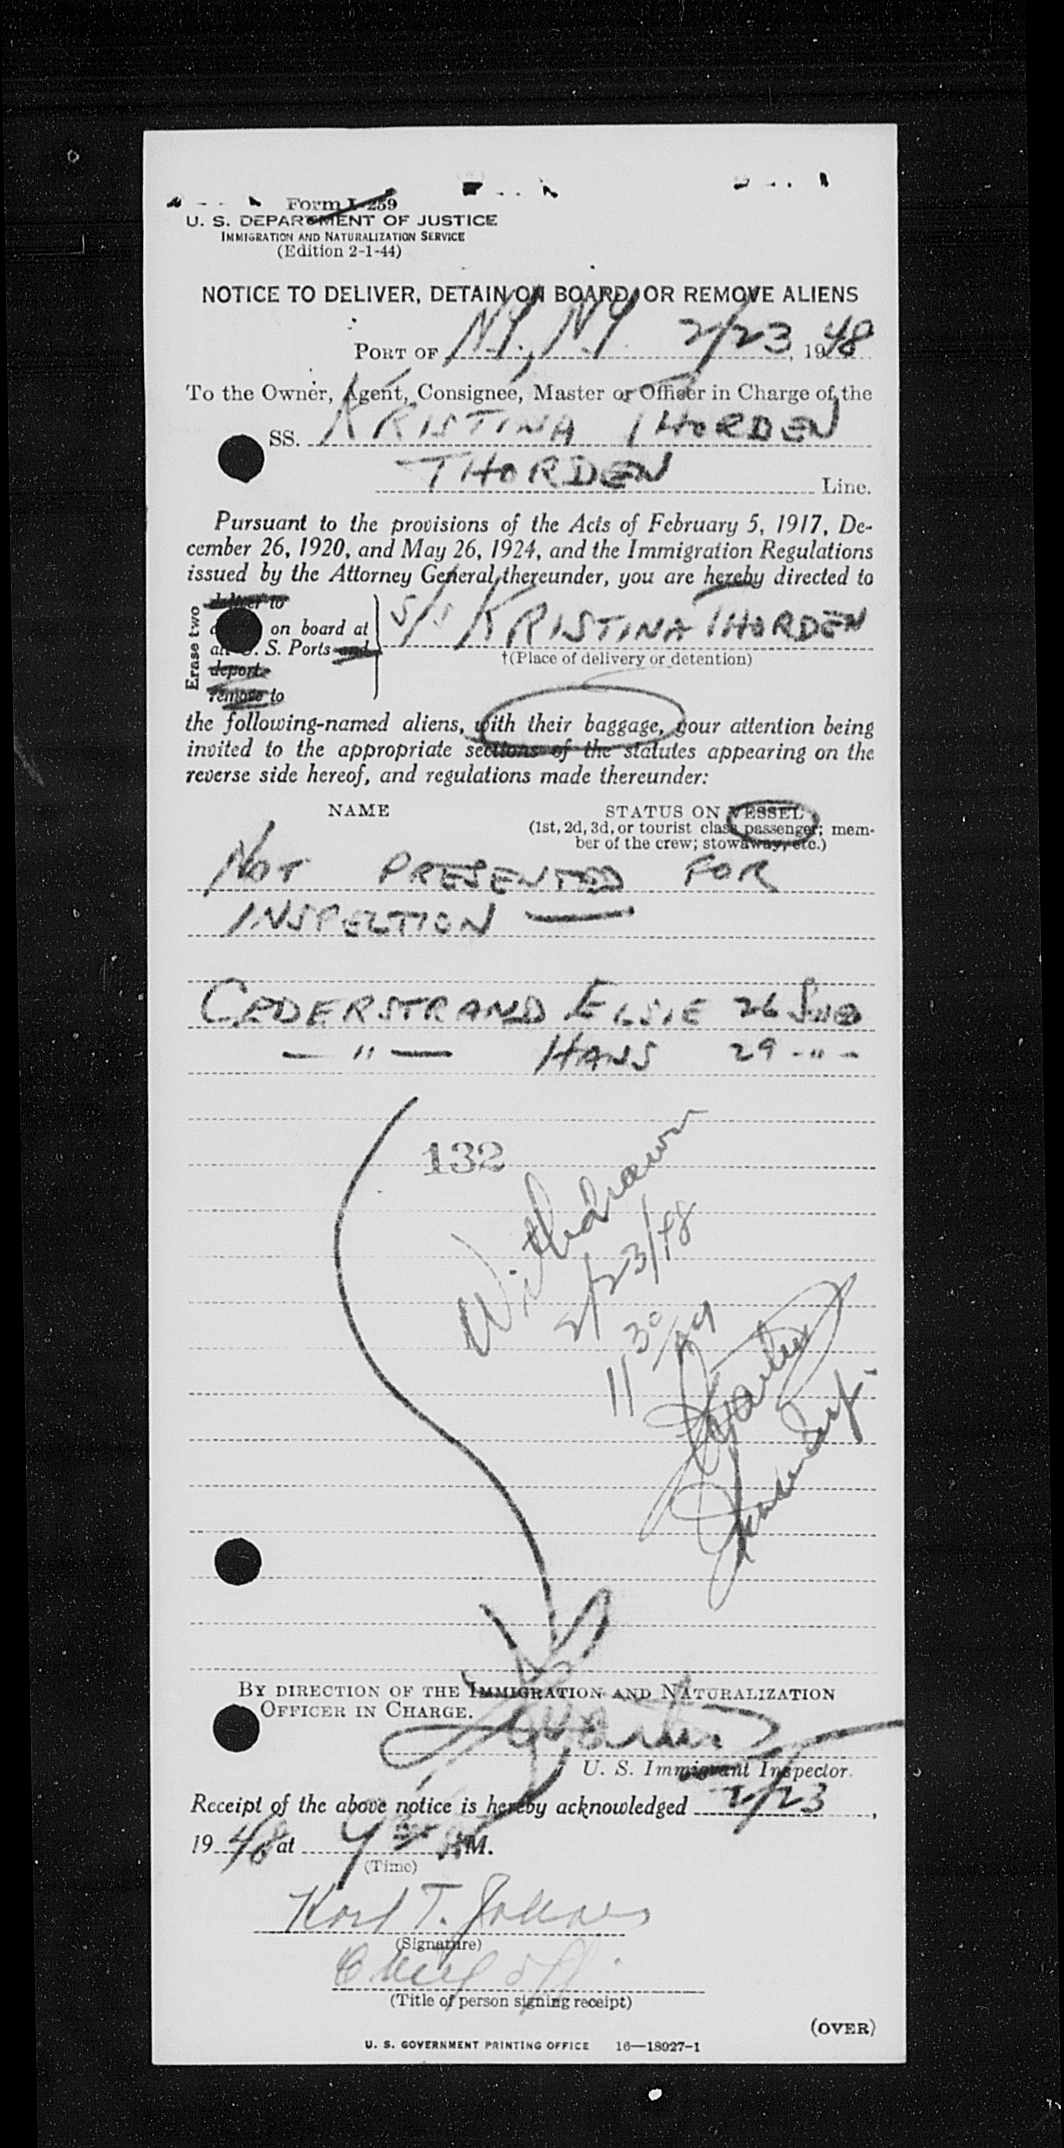 Form I-259
U. S. DEPARTMENT OF JUSTICE
IMMIGRATION AND NATURALIZATION SERVICE
(Edition 2-1-44)
NOTICE TO DELIVER, DETAIN ON BOARD, OR REMOVE ALIENS
PORT OF N.Y., N.Y. 2/23, 1948
To the Owner, Agent, Consignee, Master or Officer in Charge of the
SS. KRISTINA THORDEN
THORDEN Line.
Pursuant to the provisions of the Acts of February 5, 1917, De-
cember 26, 1920, and May 26, 1924, and the Immigration Regulations
issued by the Attorney General thereunder, you are hereby directed to
Erase two
deliver to
on board at
S. Ports and
deport
remove to
S/S KRISTINA THORDEN
†(Place of delivery or detention)
the following-named aliens, with their baggage, your attention being
invited to the appropriate sections of the statutes appearing on the
reverse side hereof, and regulations made thereunder:
NAME STATUS ON VESSEL
(1st, 2d, 3d, or tourist class passenger; mem-
ber of the crew; stowaway, etc.)
NOT PRESENTED FOR
INSPECTION —
CEDERSTRAND ELSIE 26 SWE
— " — HANS 29 - " -
132
Withdrawn
2/23/48
11 30
BY DIRECTION OF THE IMMIGRATION AND NATURALIZATION
OFFICER IN CHARGE.
U. S. Immigrant Inspector.
Receipt of the above notice is hereby acknowledged 2/23,
1948 at 9 M.
(Time)
Karl T.
(Signature)
Chief off.
(Title of person signing receipt)
(OVER)
U. S. GOVERNMENT PRINTING OFFICE 16—18027-1